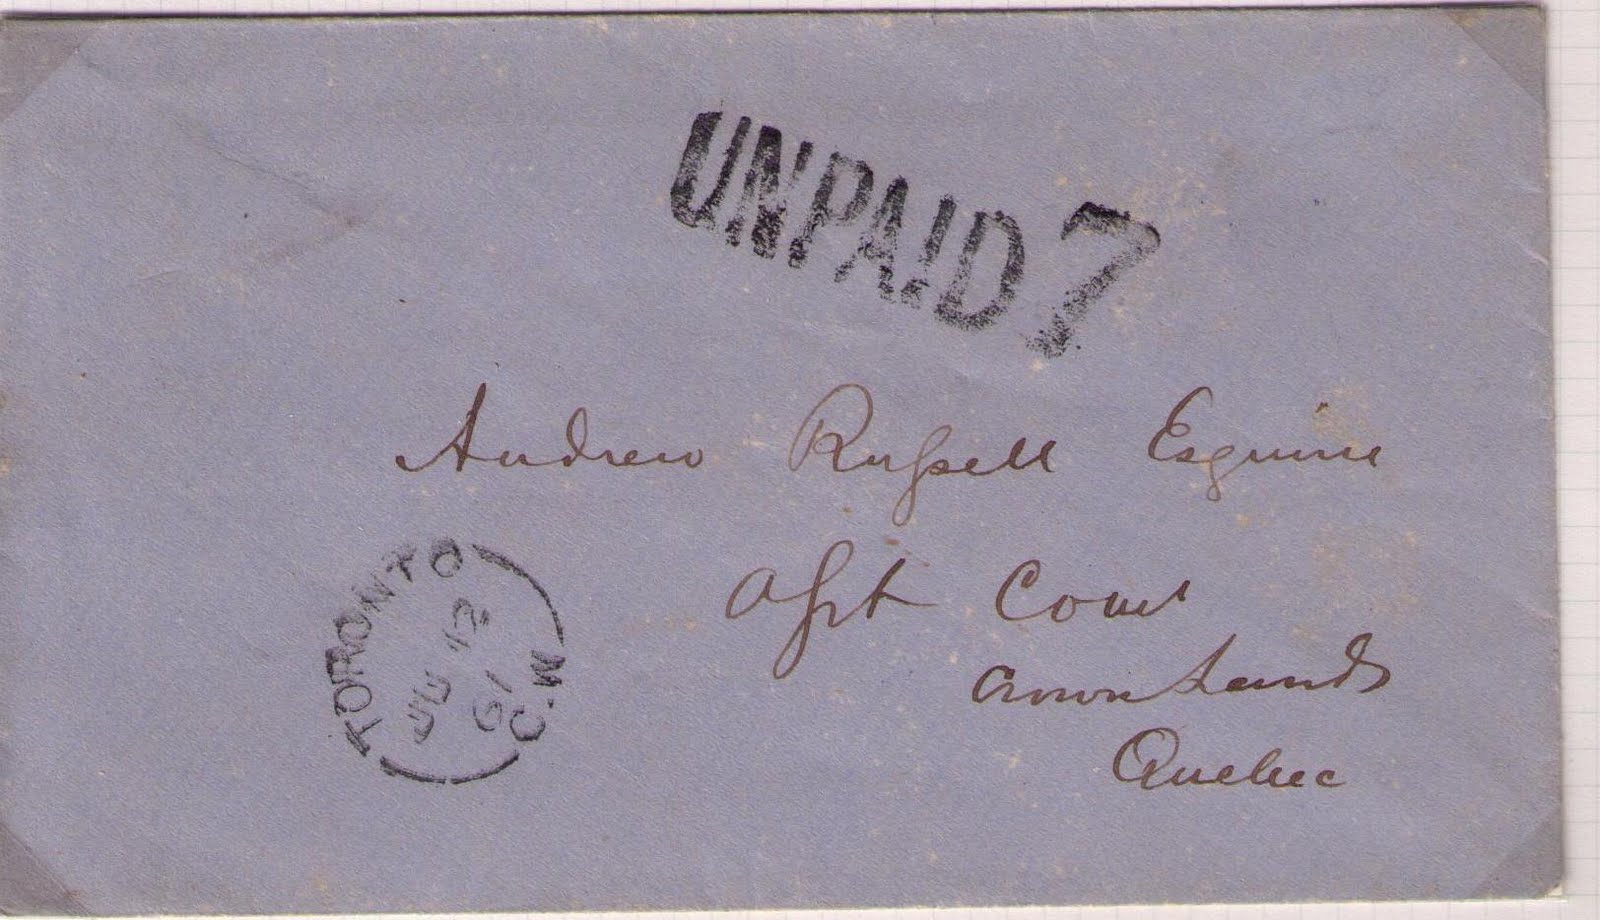 UNPAID 7
Andrew Russell Esquire
Asst Com
Crown Lands
Quebec
TORONTO
C.W
12
61